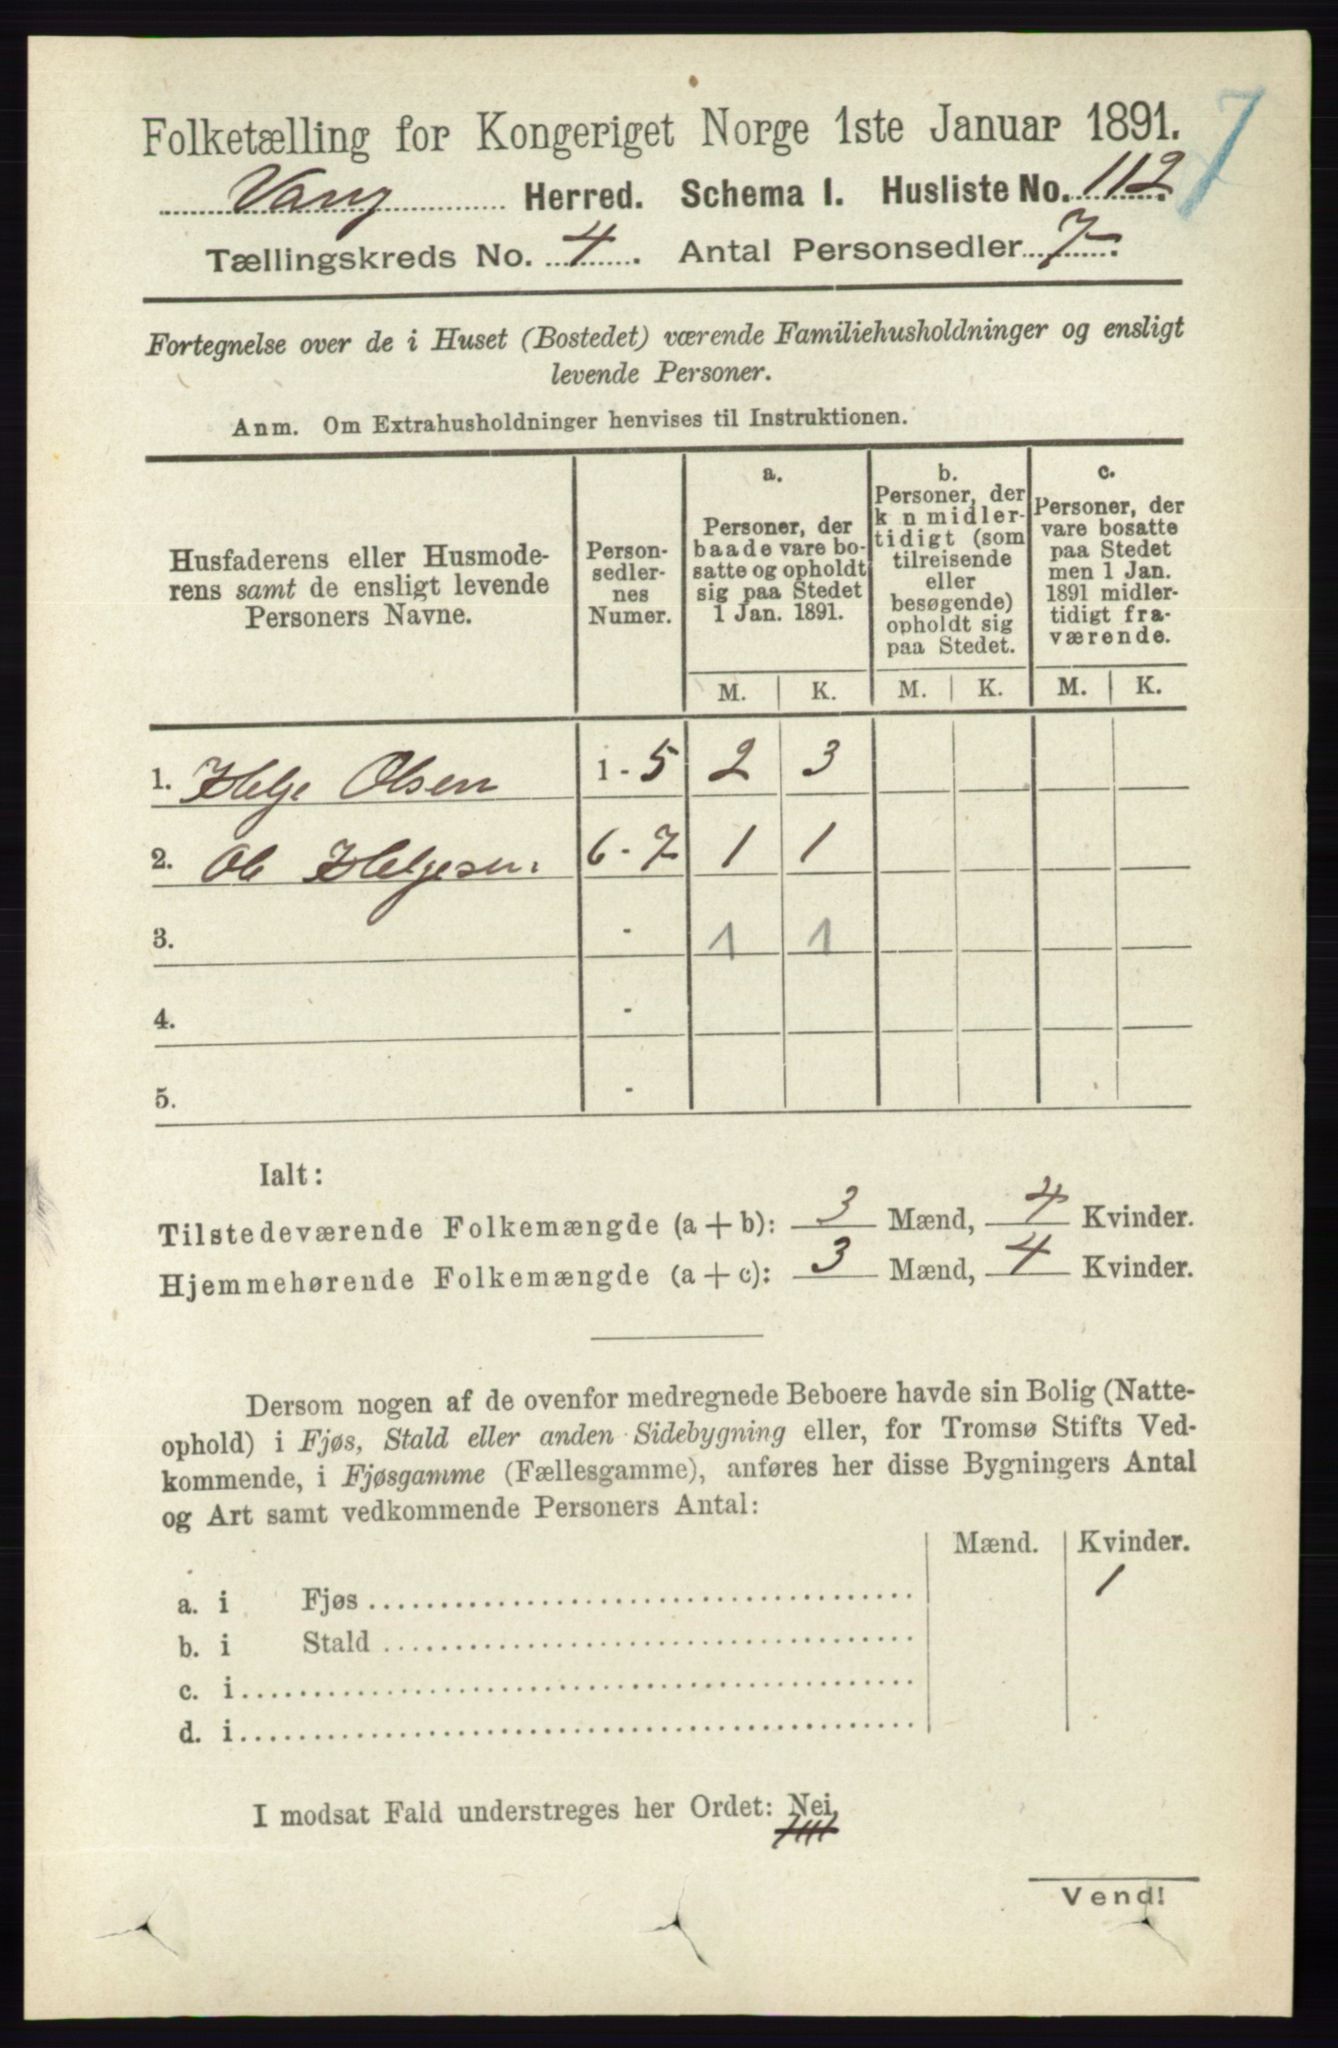 Folketælling for Kongeriget Norge 1ste Januar 1891.
7
Vang Herred. Schema I. Husliste No. 112.
Tællingskreds No. 4. Antal Personsedler 7.
Fortegnelse over de i Huset (Bostedet) værende Familiehusholdninger og ensligt
levende Personer.
Anm. Om Extrahusholdninger henvises til Instruktionen.
Husfaderens eller Husmode-
rens samt de ensligt levende
Personers Navne.
Person-
sedler-
nes
Numer.
a.
Personer, der
baade vare bo-
satte og opholdt
sig paa Stedet
1 Jan. 1891.
b.
Personer, der
k n midler-
tidigt (som
tilreisende
eller
besøgende)
opholdt sig
paa Stedet.
c.
Personer, der
vare bosatte
paa Stedet
men 1 Jan.
1891 midler-
tidigt fra-
værende.
M. K. M. K. M. K.
1. Helge Olsen 1 - 5 2 3
2. Ole Helgesen. 6 - 7 1 1
3. - 1 1
4. -
5. -
Ialt:
Tilstedeværende Folkemængde (a + b): 3 Mænd, 4 Kvinder.
Hjemmehørende Folkemængde (a + c): 3 Mænd, 4 Kvinder.
Dersom nogen af de ovenfor medregnede Beboere havde sin Bolig (Natte-
ophold) i Fjøs, Stald eller anden Sidebygning eller, for Tromsø Stifts Ved-
kommende, i Fjøsgamme (Fællesgamme), anføres her disse Bygningers Antal
og Art samt vedkommende Personers Antal:
Mænd. Kvinder.
a. i Fjøs 1
b. i Stald
c. i
d. i
I modsat Fald understreges her Ordet: Nei.
Vend!